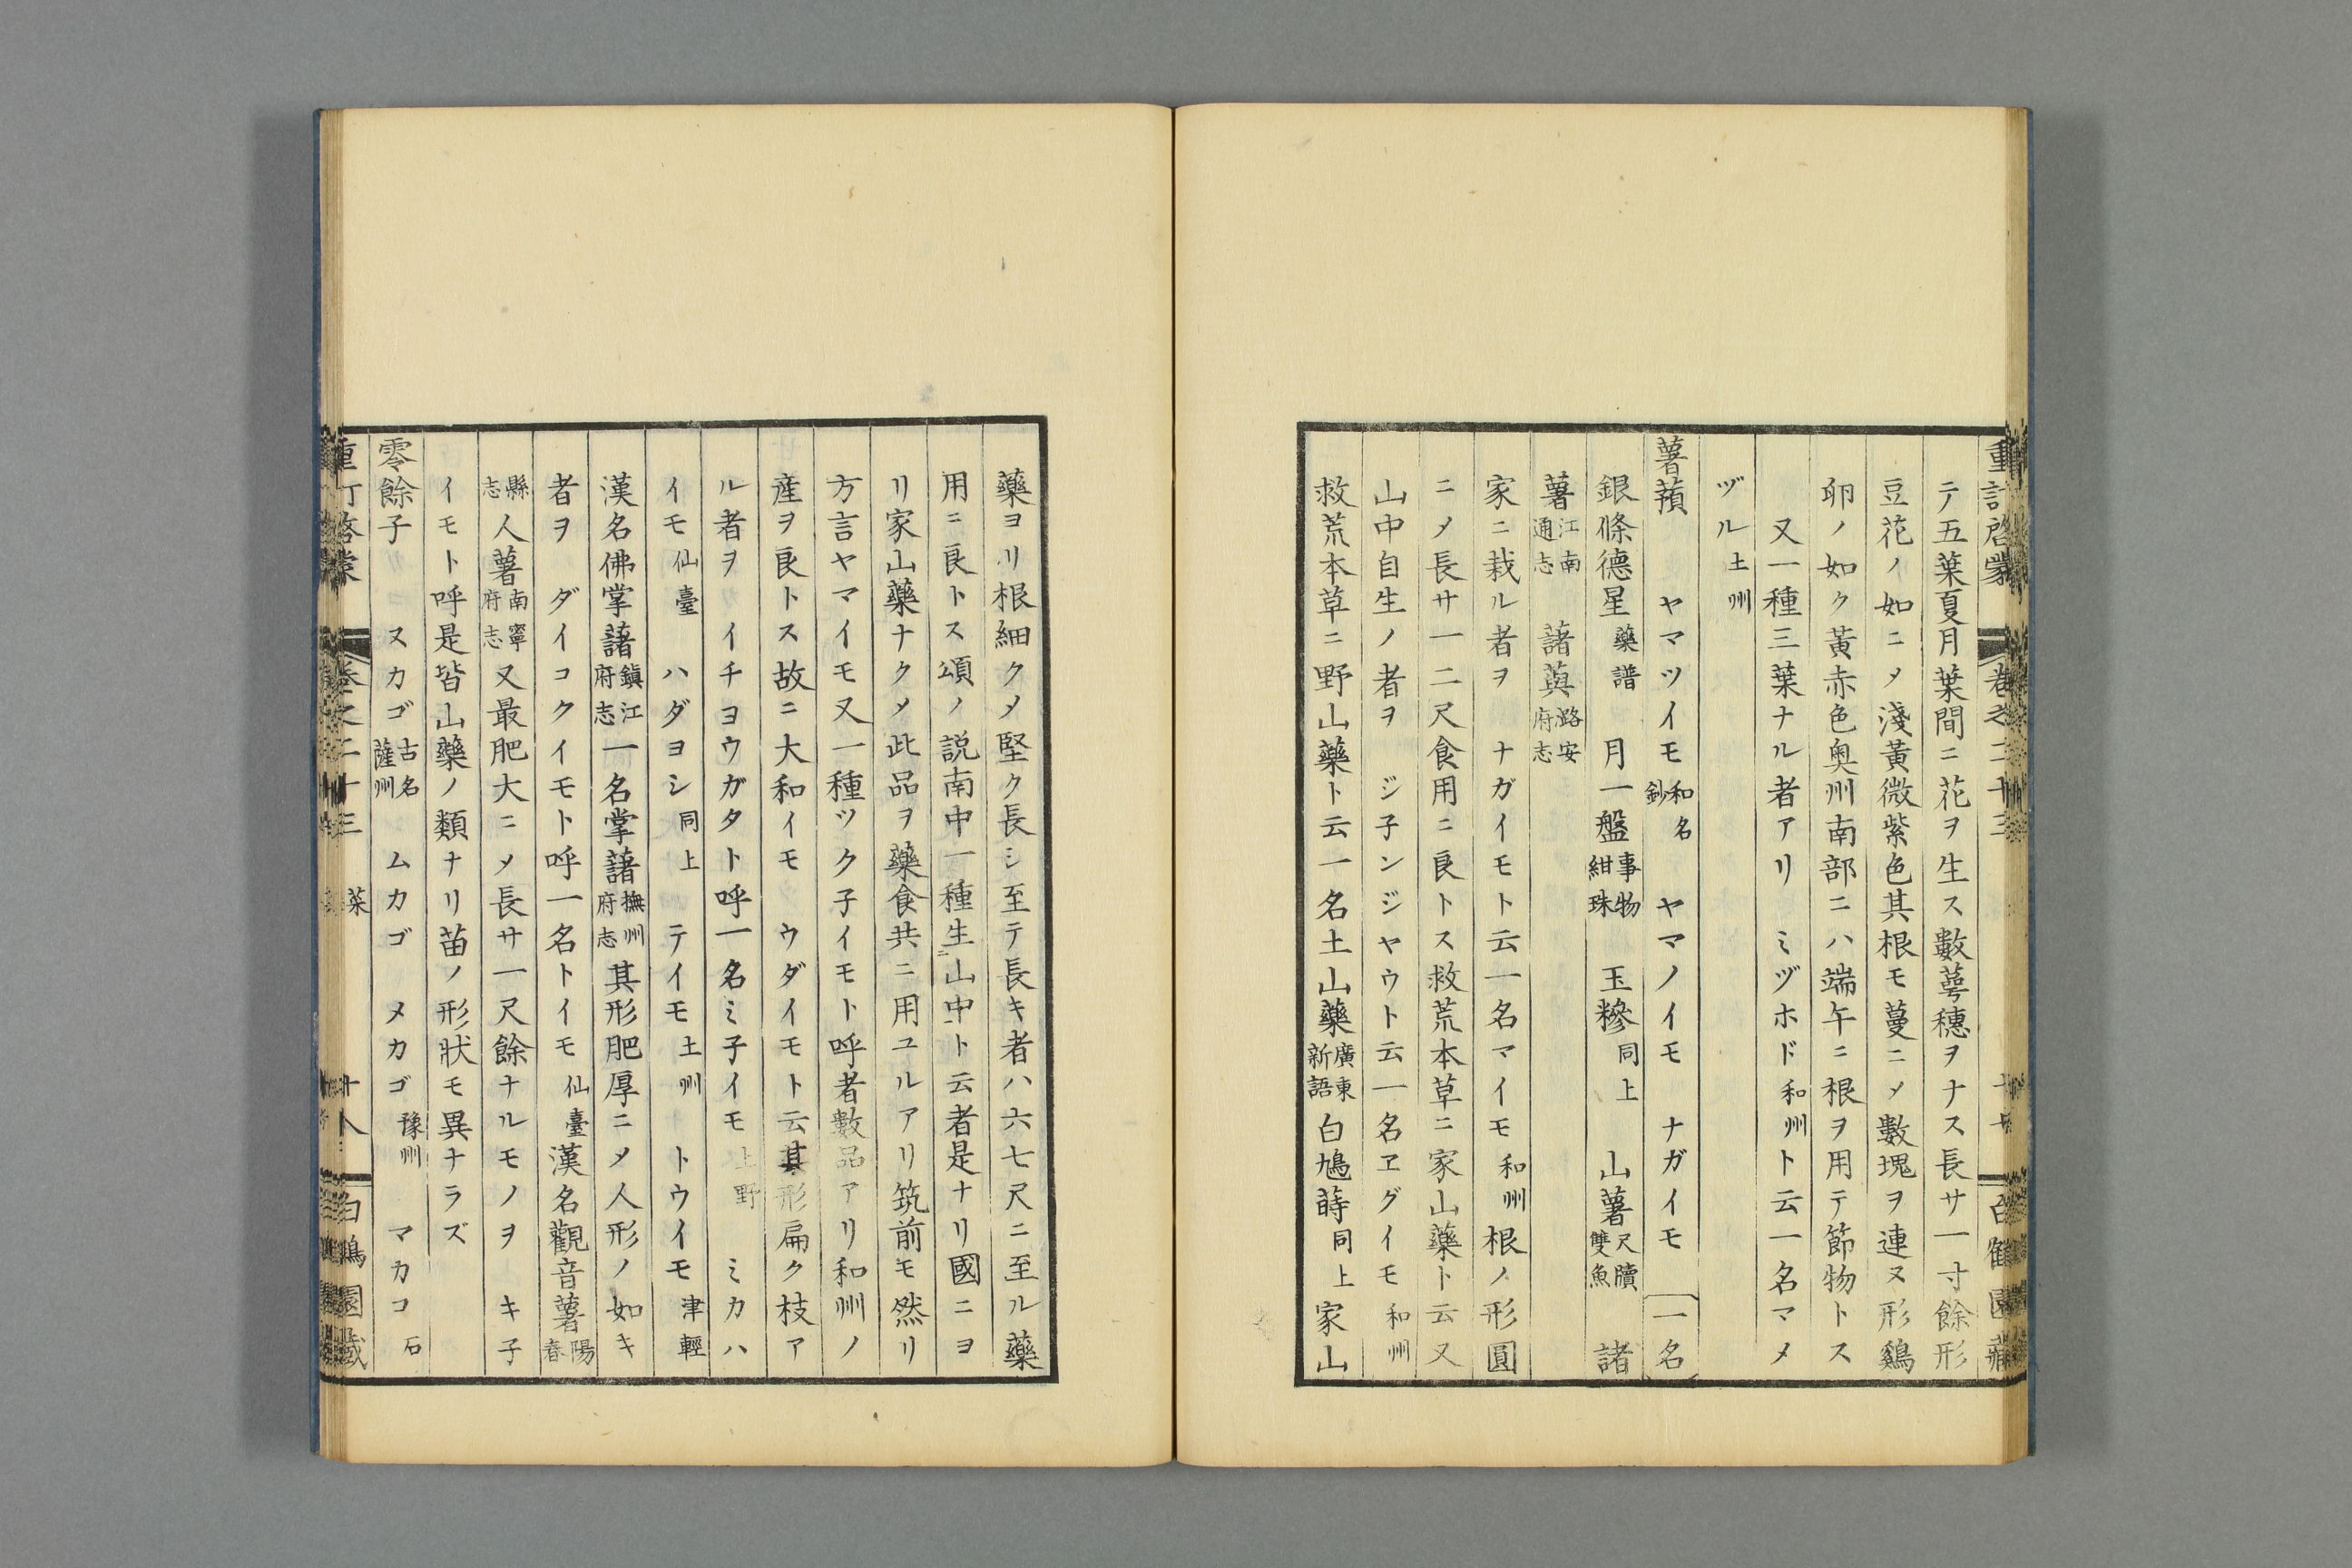 重訂啓蒙 卷之二十三 十七 白鶴園藏
テ五葉夏月葉間ニ花ヲ生ス數蕚穗ヲナス長サ一寸餘形
豆花ノ如ニメ淺黃微紫色其根モ蔓ニメ數塊ヲ連ヌ形鷄
卵ノ如ク黃赤色奥州南部ニハ端午ニ根ヲ用テ節物トス
又一種三葉ナル者アリ ミヅホド和州ト云一名マメ
ヅル土州
薯蕷 ヤマツイモ和名鈔 ヤマノイモ ナガイモ 一名
銀條德星藥譜 月一盤事物紺珠 玉糝同上 山薯尺牘雙魚 諸
薯江南通志 藷英潞安府志
家ニ栽ル者ヲ ナガイモト云一名マイモ和州根ノ形圓
ニメ長サ一二尺食用ニ良トス救荒本草ニ家山藥ト云又
山中自生ノ者ヲ ジ子ンジヤウト云一名ヱグイモ和州
救荒本草ニ野山藥ト云一名土山藥廣東新語白鳩蒔同上家山
藥ヨリ根細クメ堅ク長シ至テ長キ者ハ六七尺ニ至ル藥
用ニ良トス頌ノ説南中一種生山中ト云者是ナリ國ニヨ
リ家山藥ナクメ此品ヲ藥食共ニ用ユルアリ筑前モ然リ
方言ヤマイモ又一種ツク子イモト呼者數品アリ和州ノ
産ヲ良トス故ニ大和イモ ウダイモト云其形扁ク枝ア
ル者ヲ イチヨウガタト呼一名ミ子イモ上野 ミカハ
イモ仙臺 ハダヨシ同上 テイモ土州 トウイモ津輕
漢名佛掌藷鎭江府志一名掌藷撫州府志其形肥厚ニメ人形ノ如キ
者ヲ ダイコクイモト呼一名トイモ仙臺漢名觀音薯陽春
縣志人薯南寧府志又最肥大ニメ長サ一尺餘ナルモノヲ キ子
イモト呼是皆山藥ノ類ナリ苗ノ形狀モ異ナラズ
零餘子 ヌカゴ古名薩州 ムカゴ メカゴ豫州 マカコ石
重訂啓蒙 卷之二十三 菜 十八 白鶴園藏